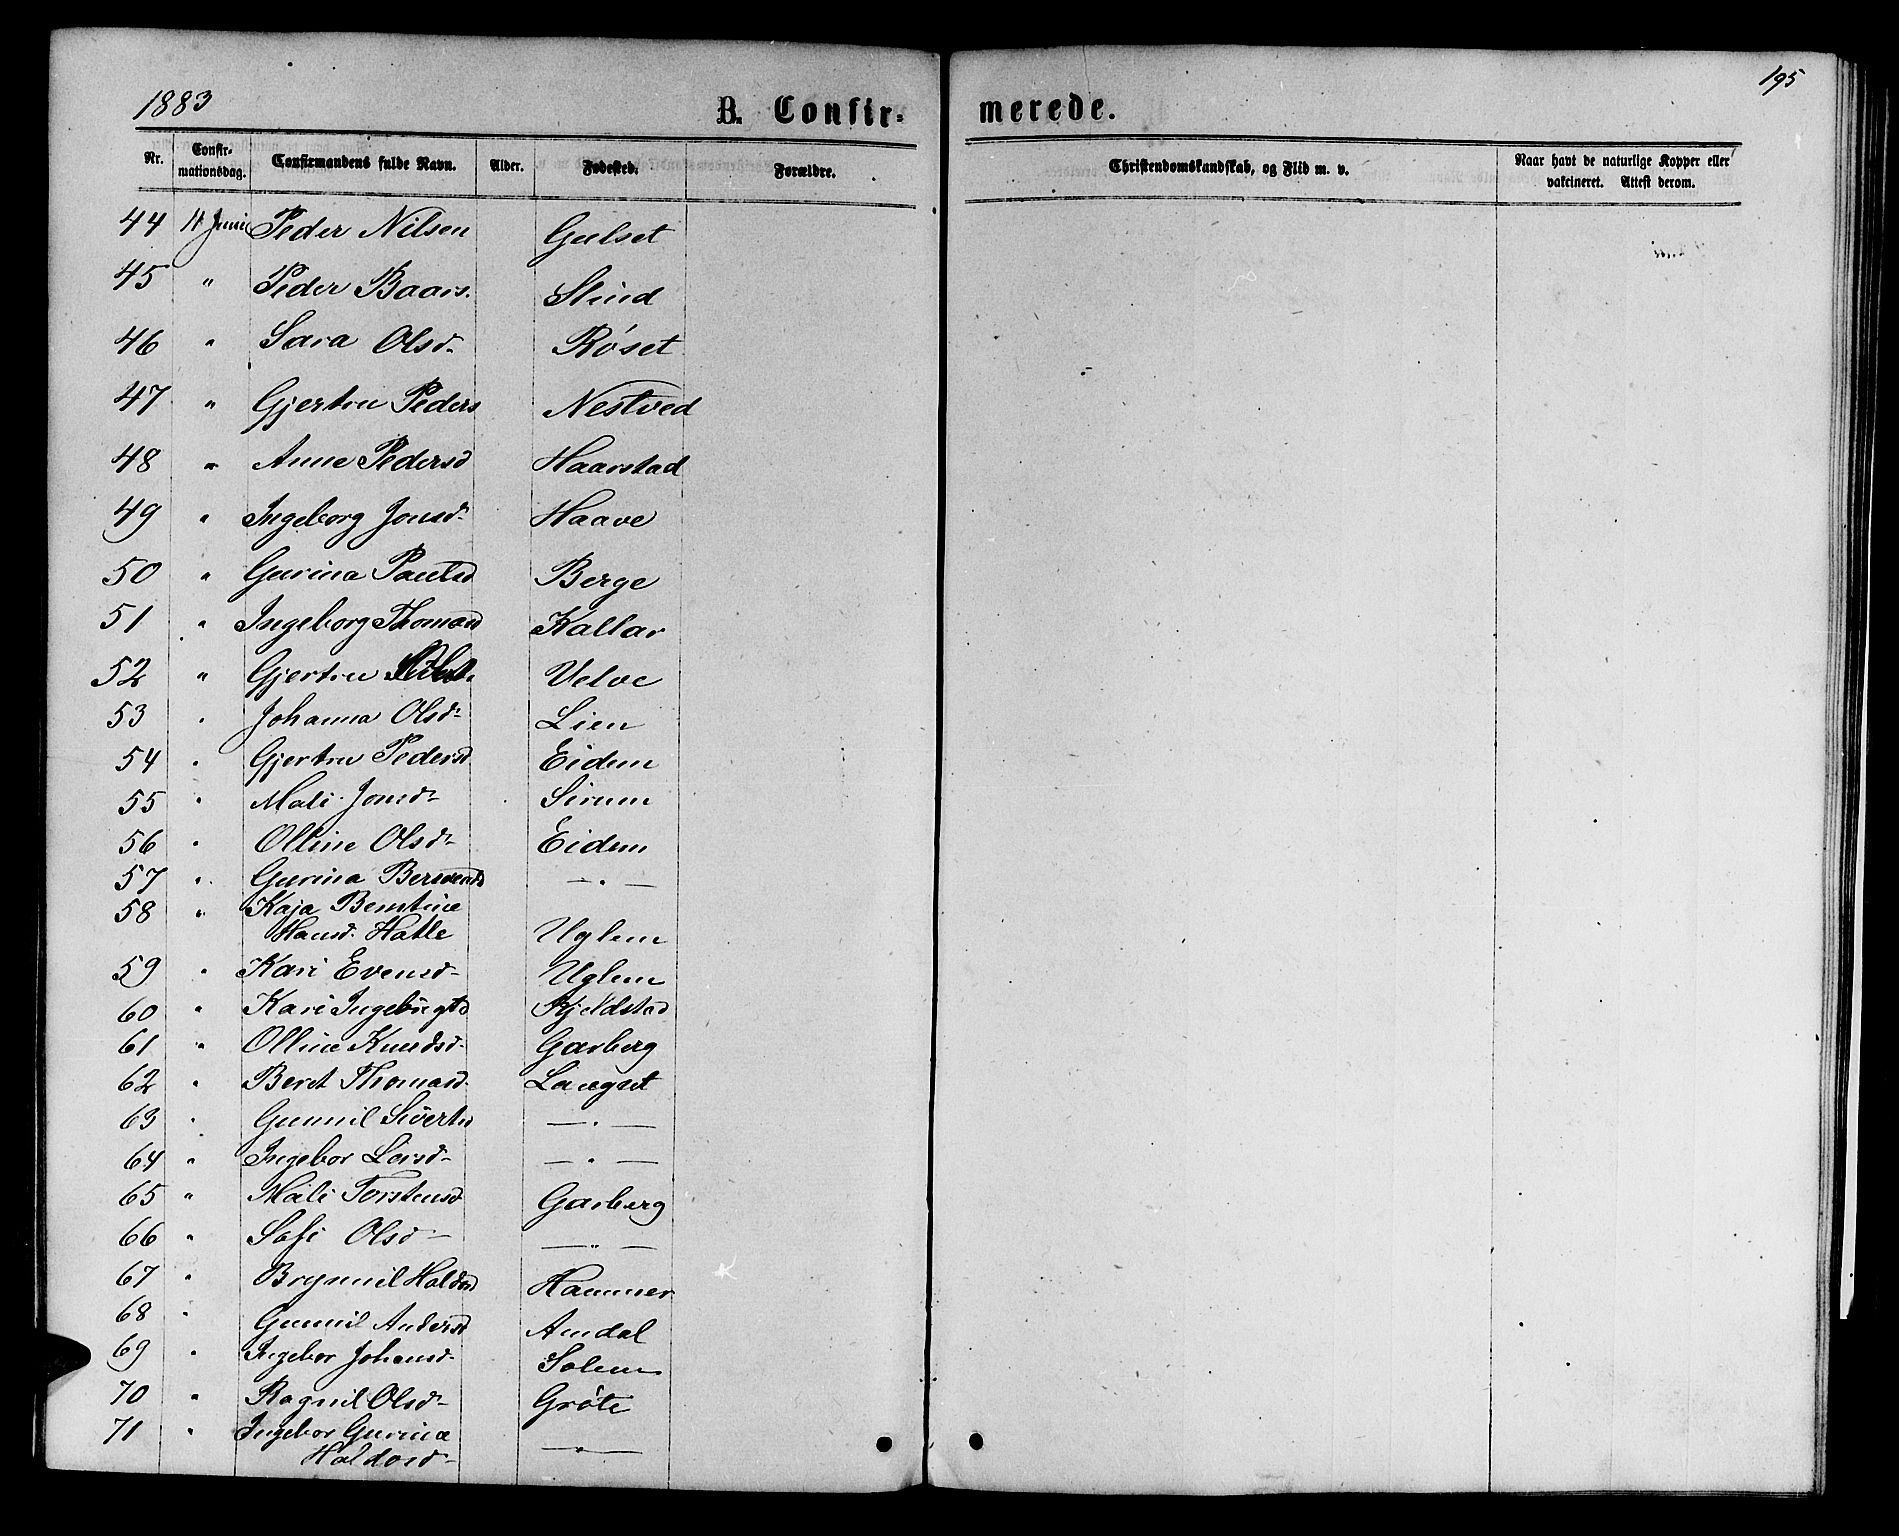 1883
195
B. Confir-
merede.
Nr. Confir-mationsdag. Confirmandens fulde Navn. Alder. Fødested. Forældre. Christendomskundskab, og Flid m. v. Naar havt de naturlige Kopper eller vakcineret. Attest derom.
44 11 Juni Peder Nilsen Gulset
45 " Peder Baars. Slind
46 " Sara Olsd- Røset
47 " Gjertru Peders Nestved
48 " Anne Pedersd Haarstad
49 " Ingeborg Jonsd- Haave
50 " Gurina Paulsd Berge
51 " Ingeborg Thomasd Kallar
52 " Gjertru Velve
53 " Johanna Olsd- Lien
54 " Gjertru Pedersd Eidem
55 " Mali Jonsd- Sirum
56 " Olline Olsd- Eidem
57 " Gurina Bersvends — " —
58 " Kaja Berntine
Hansd. Hatle Uglem
59 " Kari Evensd- Uglem
60 " Kari Ingebrigtd Kjeldstad
61 " Olline Knudsd- Garberg
62 " Beret Thomasd. Langset
63 " Gunnil Sivertsd — " —
64 " Ingebor Larsd- — " —
65 " Mali Torstensd Garberg
66 " Sofi Olsd- — " —
67 " Brynnil Haldosd Hammer
68 " Gunnil Andersd Amdal
69 " Ingebor Johansd- Solem
70 " Ragnil Olsd- Grøte
71 " Ingebor Gurina
Haldorsd- — " —